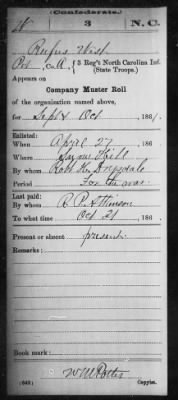 Confederate.
W 3 N.C.
Rufus West
Pvt Co A, 3 Reg't North Carolina Inf.
(State Troops.)
Appears on
Company Muster Roll
of the organization named above,
for Sept & Oct , 186 .
Enlisted:
When April 27 , 186 .
Where
By whom Robt H. Drysdale
Period For the war
Last paid:
By whom R. P. Atkinson
To what time Oct 31 , 186 .
Present or absent present
Remarks:
Book mark:
(642) Copyist.